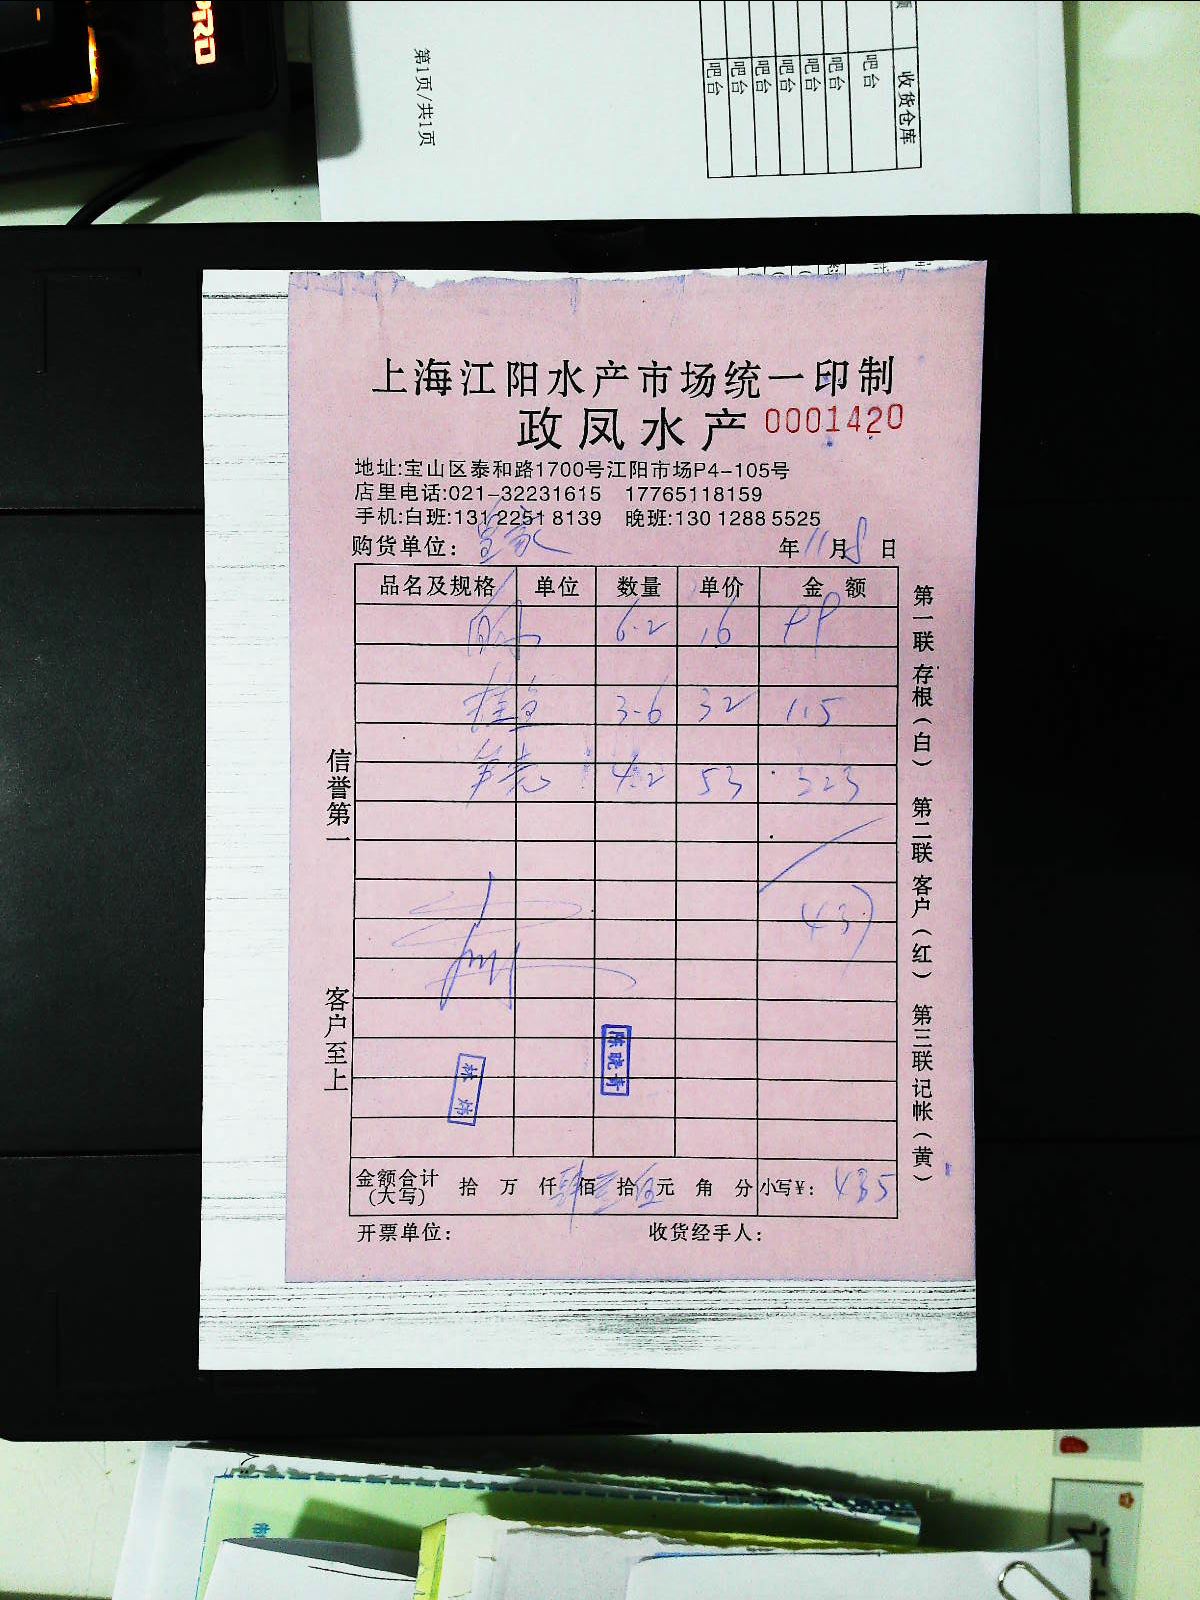 PRO
第1页/共1页
收货仓库
吧台
吧台
吧台
吧台
吧台
吧台
吧台
上海江阳水产市场统一印制
政凤水产 0001420
地址:宝山区泰和路1700号江阳市场P4-105号
店里电话:021-32231615 17765118159
手机:白班:131 2251 8139 晚班:130 1288 5525
购货单位: 年11月8日
品名及规格 单位 数量 单价 金额
6.2 16 99
桂鱼 3.6 32 115
4.2 53 223
437
金额合计(大写) 拾 万 仟 肆佰 叁拾 伍元 角 分 小写¥: 435
开票单位: 收货经手人:
信誉第一
客户至上
第一联 存根(白) 第二联 客户(红) 第三联 记帐(黄)
陈晓青
林炜